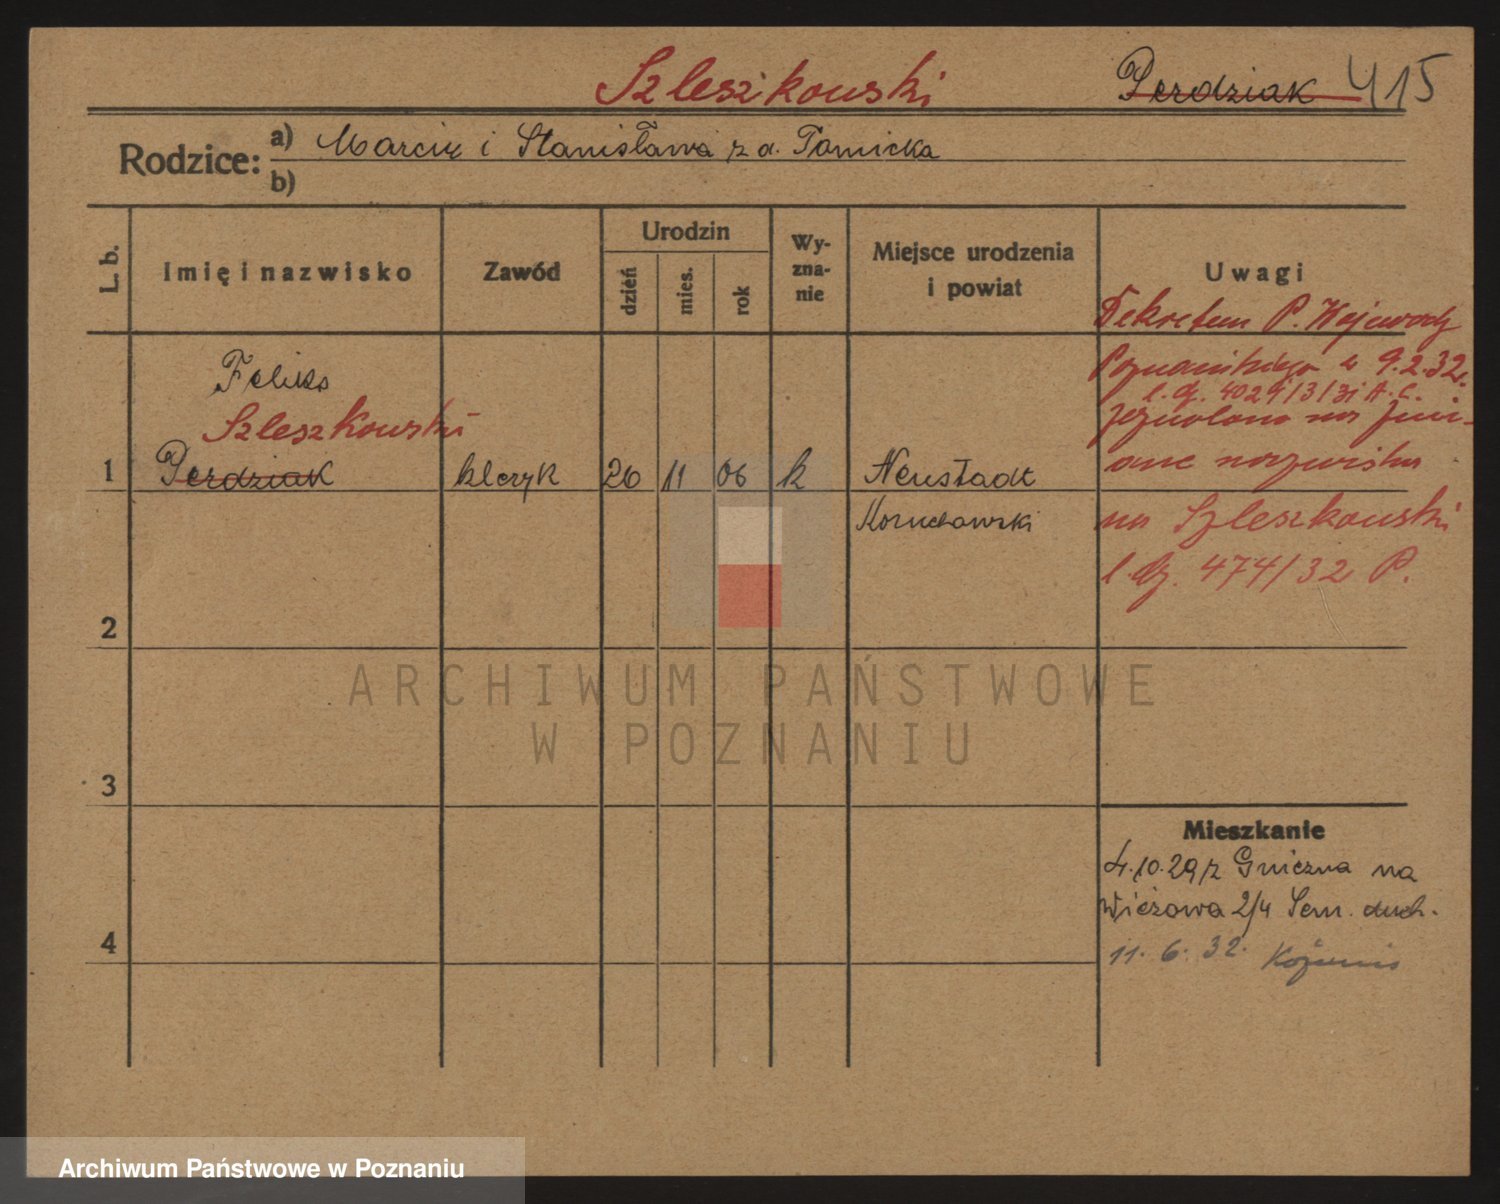 Szleszkowski Perdziak 415
Rodzice: a) Marcin i Stanisława z d. Tomicka
b)
L. b. Imię i nazwisko Zawód Urodzin dzień mies. rok Wy-zna-nie Miejsce urodzenia i powiat Uwagi
Dekretem P. Wojewody
Poznańskiego z 9.2.32.
l. dz. 4029/3/31 A. C.
zezwolono na zmi-
Feliks
Szleszkowski
1 Perdziak kleryk 26 11 06 k Neustadt
anę nazwiska
Koźuchowski
na Szleszkowski
l. dz. 474/32 P.
2
3
Mieszkanie
4.10.29 z Gniezna na
Wieżowa 2/4 Sem. duch.
4
11. 6. 32.
ARCHIWUM PAŃSTWOWE
W POZNANIU
Archiwum Państwowe w Poznaniu